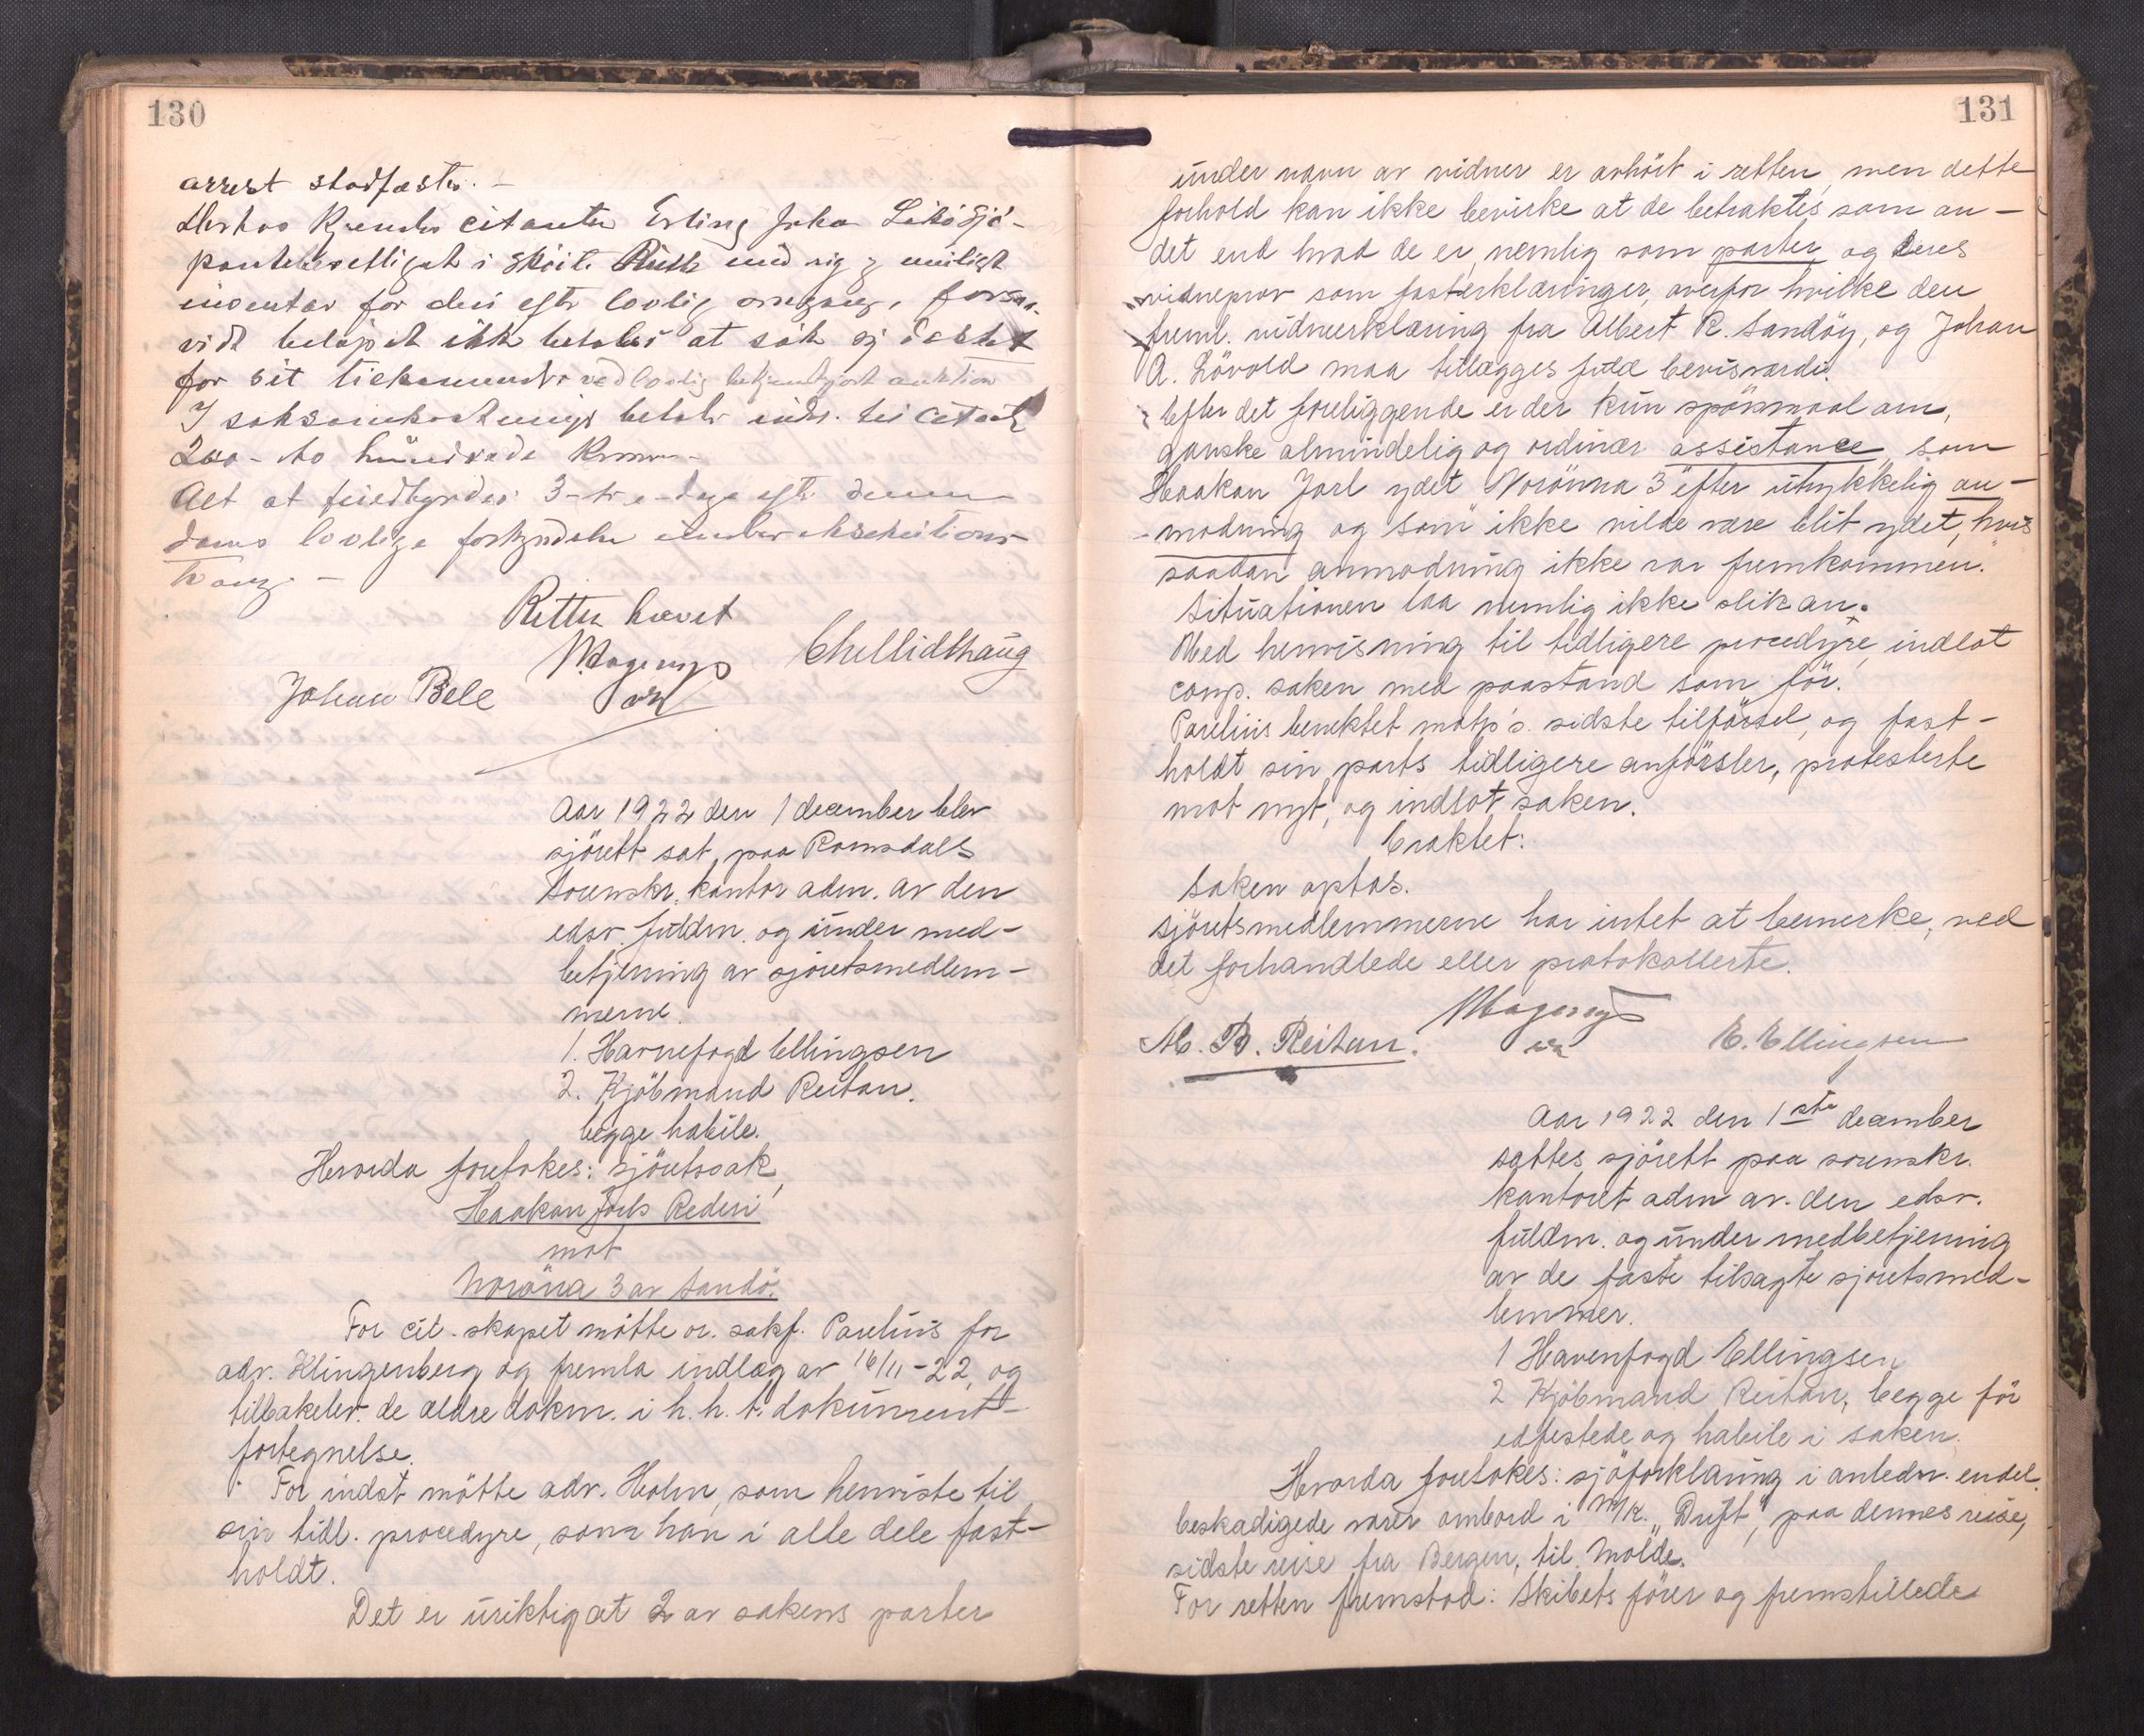 130
arrest stadfæstes. –
Derhos kjendes citanten Erling Johan
panteberettiget i skøite Ruth med rig og
inventar for den efter lovlig omgang, forsaa-
vidt beløpet ikke betales at søke sig dækket
for sit tilkommende ved lovlig bekjendtgjort auktion
I saksomkostninger betaler indst. til citant
200 – to hundrede kroner –
Alt at efter denne
doms lovlige forkyndelse under eksekutions-
tvang. –
Retten hævet
Johan Bele
Aar 1922 den 1 december blev
sjörett sat paa Romsdals
sorenskr. kontor adm. av den
edsv. fuldm. og under med-
betjening av sjöretsmedlem-
merne.
1. Havnefogd Ellingsen
2. Kjöbmand Reitan.
begge habile.
Hvorda foretokes: sjöretssak,
Haakon Jarls Rederi
mot
Noröna 3 av Sandö.
For cit. skapet mötte or. sakf. Parelius for
adv. Klingenberg og fremla indlæg av 16/11-22, og
tilbakelev. de ældre dokm. i h. h. t. dokument-
fortegnelse.
For indst mötte adv. Holm, som henviste til
sin tidl. procedyre, som han i alle dele fast-
holdt.
Det er uriktig at 2 av sakens parter
131
under navn av vidner er avhört i retten, men dette
forhold kan ikke bevirke at de betraktes som an-
det end hvad de er, nemlig som parter og deres
vidneprov som partserklæringer, overfor hvilke den
freml. vidneerklæring fra Albert R. Sandöy, og Johan
A. Lövold maa tillægges fuld bevisværdi.
Efter det foreliggende er der kun spörsmaal om,
ganske almindelig og ordinær assistance, som
Haakon Jarl ydet "Norönna 3" efter utrykkelig an-
modning og som ikke vilde være blit ydet, hvis
saadan anmodning ikke var fremkommen.
Situationen laa nemlig ikke slik an.
Med henvisning til tidligere procedyre, indlot
comp. saken med paastand som för.
Parelius benektet motp's. sidste tilförsel, og fast-
holdt sin parts tidligere anförsler, protesterte
mot nyt, og indlot saken.
Eraktet:
Saken optas.
Sjöretsmedlemmerne har intet at bemerke, ved
det forhandlede eller protokollerte.
M. B. Reitan.
E. Ellingsen
Aar 1922 den 1ste december
sattes sjörett paa sorenskr.
kontoret adm av den edsv.
fuldm. og under medbetjening
av de faste tilsagte sjöretsmed-
lemmer.
1 Havenfogd Ellingsen
2 Kjöbmand Reitan, begge för
edfestede og habile i saken.
Hvorda foretokes: sjöforklaring i anledn. endel
beskadigede varer ombord i M/K. "Drift", paa dennes reise,
sidste reise fra Bergen, til Molde.
For retten fremstod: Skibets förer og fremstillede